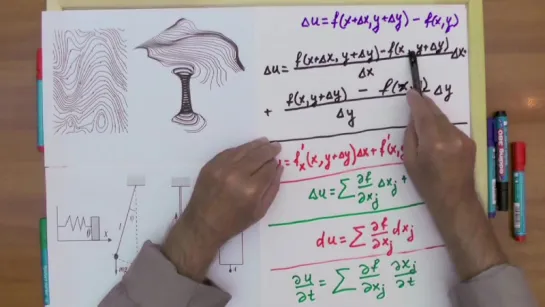 Δu = f(x+Δx, y+Δy) − f(x,y)
Δu = f(x+Δx, y+Δy) − f(x, y+Δy) / Δx Δx +
+ f(x, y+Δy) − f(x, / Δy Δy
= f'x (x, y+Δy)Δx + f'y(x,
Δu = ∑ ∂f/∂xj Δxj +
du = ∑ ∂f/∂xj dxj
∂u/∂t = ∑ ∂f/∂xj ∂xj/∂t
x
l
θ